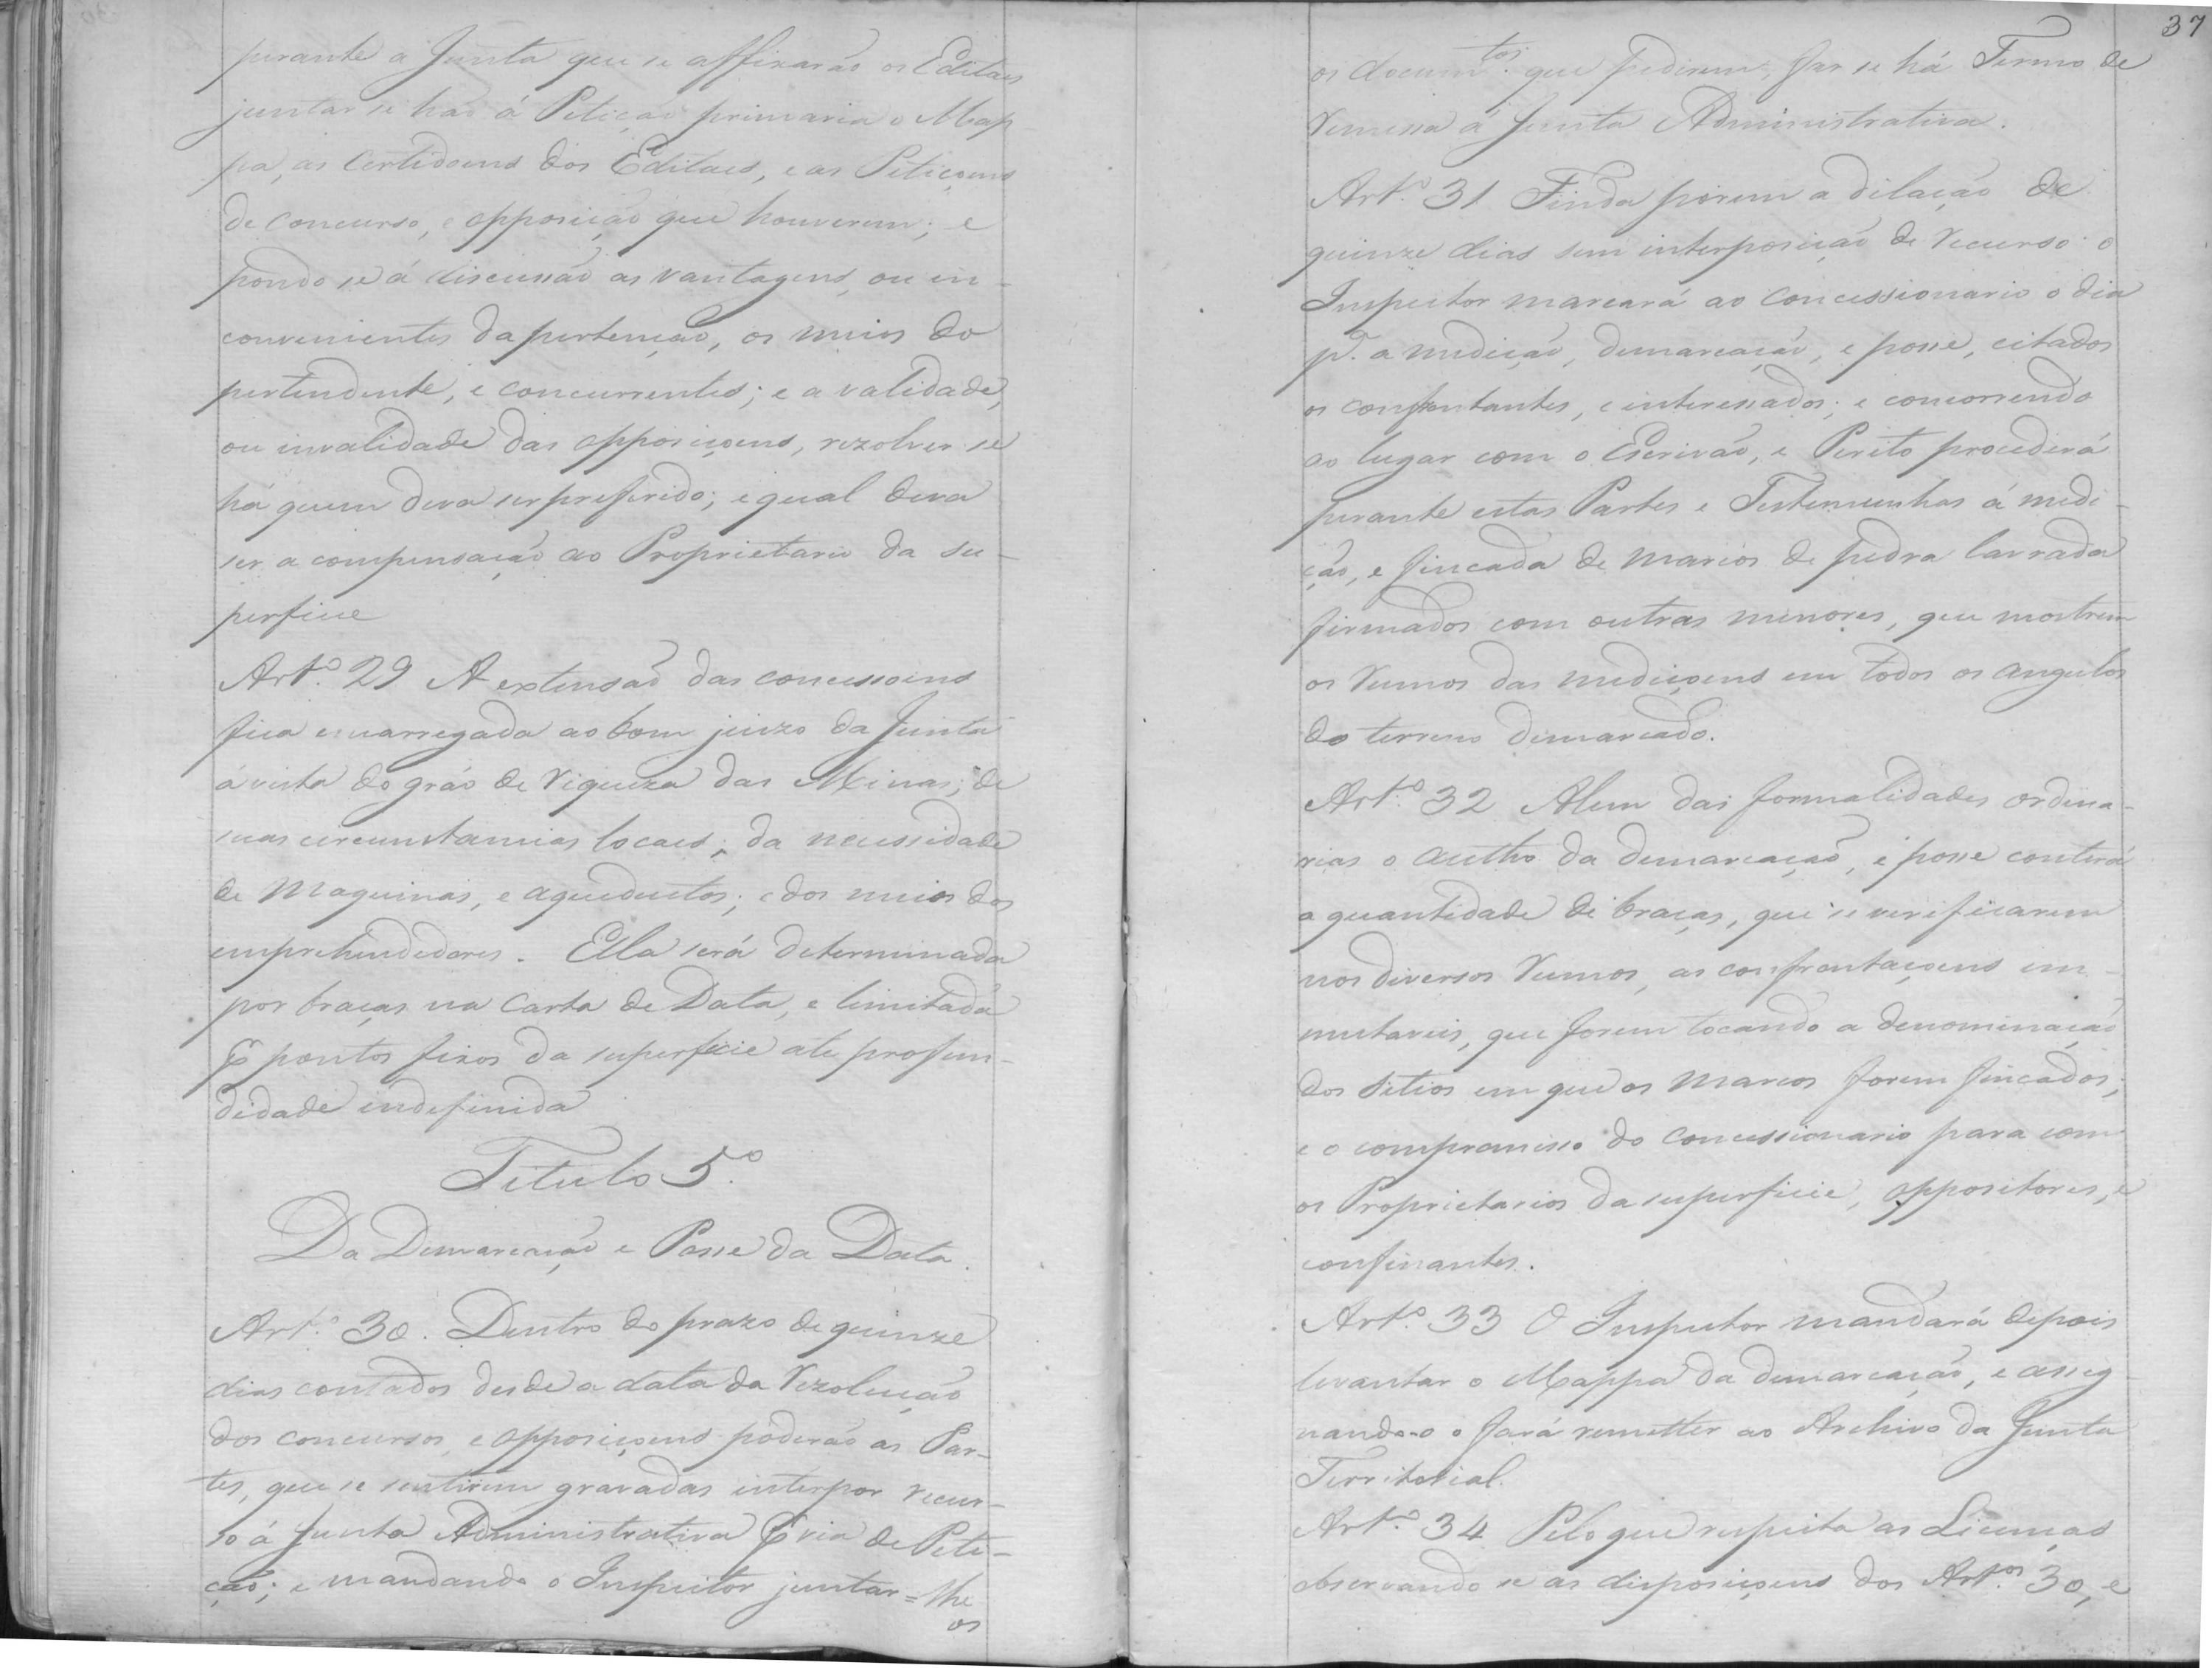 perante a Junta que se affixarão os Editaes
juntar se hão á Petição primaria o Map
pa, as Certidoens dos Editaes, e as Petiçoens
de concurso, e opposição que houverem; e
pondo se á discussão as vantagens, ou in-
convenientes da pertenção, os meios do
pertendente, e concurrentes; e a validade,
ou invalidade das opposiçoens, rezolver se
há quem deva ser preferido; e qual deva
ser a compensação ao Proprietario da su-
perficie
Art.º 29 A extensão das concessoens
fica encarregada ao bom juizo da Junta
á vista do gráo de riqueza das Minas; de
suas circumstancias locaes; da necessidade
de Maquinas, e aqueductos; e dos meios dos
emprehendedores. Ella será determinada
por braças na Carta de Data, e limitada
p pontos fixos da superficie ate profun-
didade indefinida
Titulo 5.º
Da Demarcação e Posse da Data.
Art.º 30. Dentro do prazo de quinze
dias contados desde a data da Rezolução
dos concursos, e opposiçoens poderão as Par-
tes, que se sentirem gravadas interpor recur-
so á Junta Administrativa p via de Peti-
ção; e mandando o Inspector juntar=lhe
os
37
os docum.tos que pedirem, far se há Termo de
remessa á Junta Administrativa.
Art.º 31 Finda porem a dilação de
quinze dias sem interposição de recurso o
Inspector marcará ao Concessionario o dia
p.ª a medição, demarcação, e posse, citados
os confrontantes, e interessados; e concorrendo
ao lugar com o Escrivão, e Perito procederá
perante estas Partes e Testemunhas á medi-
ção, e fincada de marcos de pedra lavrada
firmados com outras menores, que mostrem
os rumos das mediçoens em todos os angulos
do terreno demarcado.
Art.º 32 Alem das formalidades ordina-
rias o autho da demarcação, e posse conterá
a quantidade de braças, que se verificarem
nos diversos rumos, as confrontaçoens im-
mutaveis, que forem tocando a denominação
dos sitios em que os marcos forem fincados,
e o compromisso do concessionario para com
os Proprietarios da superficie, oppositores, e
confinantes.
Art.º 33 O Inspector mandará depois
levantar o Mappa da demarcação, e assig
nando-o o fará remetter ao Archivo da Junta
Territorial.
Art.º 34 Pelo que respeita as Licenças
observando se as disposiçoens dos Art.os 30, e